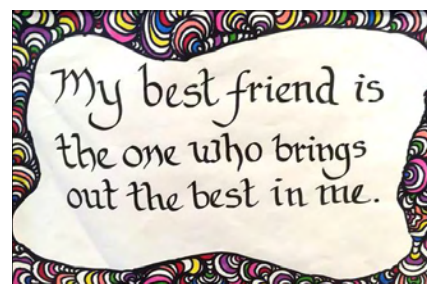 My best friend is
the one who brings
out the best in me.